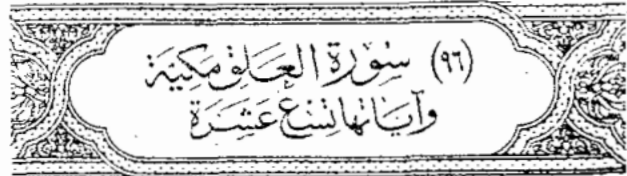 (٩٦) سُورَةُ العَلَقِ مَكِيَّة
وَآيَاتُهَا تِسْعَ عَشَرَة